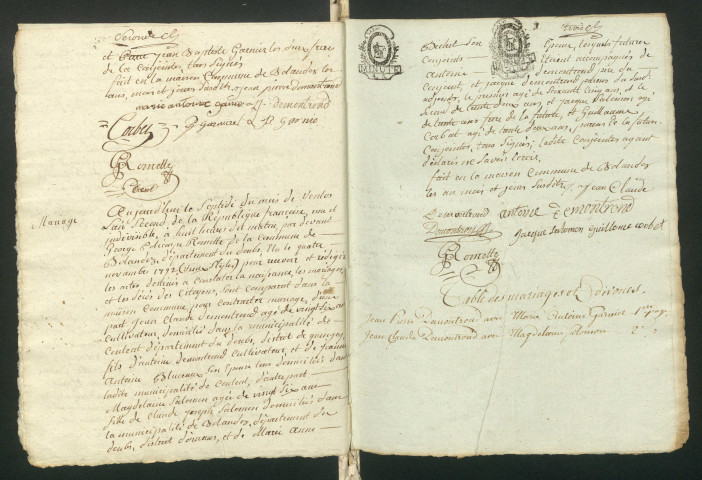 et jean Baptiste Garnier les deux frere
de la Conjointe, tous Signés
fait en la maison Commune de Bolandoz les
ans, mois et jours susdits. jean pierre demontrond
marie antoine garnier demontrond
Corbet P garnier J B garnie
Romette
Mariage
Aujourd'huy le Septidi du mois de Ventos
L'an Second de la République française, une et
indivisible, à huit heures du matin, par devant
George Policarpe Romette de la Commune de
Bolandoz, département du doubs, Elu le quatre
novembre 1792 (vieux Style) pour recevoir et rédiger
les actes destinés à Constater la naissance, les mariages
et les décès des Citoyens, sont Comparus dans la
maison Commune pour Contracter mariage, d'une
part Jean Claude demontrond agé de vingt six ans
Cultivateur, domicilié dans la municipalité de
département du doubs, district de quingey,
fils d'antoine demontrond Cultivateur, et de francoise
Antoine son Epouse tous domiciliés dans
ladite municipalité de d'autre part
Magdelaine Salomon agée de vingt Six ans
fille de Claude Joseph Salomon domiciliés dans
la municipalité de Bolandoz, département du
doubs, district d'ornans, et de Marie Anne
Son Epouse, lesquels futures
Conjoints étoient accompagnés de
Antoine
et jacque demontrond
le premier agé de Soixante Cinq ans, et le
Second de trente deux ans, et jacque Salomon agé
de trente ans frere de la future, et Guillaume
Corbet agé de trente deux ans, parens de la future
Conjointe, tous Signés, ladite Conjointe ayant
déclaré ne Savoir Ecrire.
fait en la maison Commune de Bolandoz
les an mois et jours Susdits. jean Claude
Demontrond antoine Demontrond
Demontrond jacque Salomon guillome corbet
Romette
Table des mariages et Divorces.
Jean Pierre Demontrond avec Marie Antoine Garnier 1er pag.
Jean Claude Demontrond avec Magdelaine Salomon 2